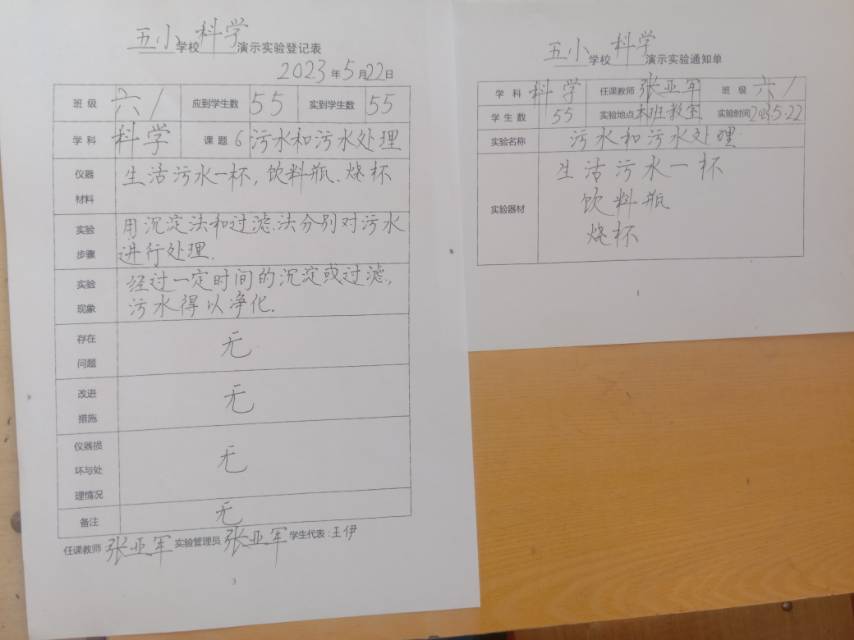 五小学校科学演示实验登记表
2023年5月22日
班级 六1 应到学生数 55 实到学生数 55
学科 科学 课题 6 污水和污水处理
仪器材料 生活污水一杯,饮料瓶.烧杯
实验步骤 用沉淀法和过滤.法分别对污水
进行处理.
实验现象 经过一定时间的沉淀或过滤,
污水得以净化.
存在问题 无
改进措施 无
仪器损坏与处理情况 无
备注 无
任课教师 张亚军 实验管理员 张亚军 学生代表:王伊
3
五小学校科学演示实验通知单
学科 科学 任课教师 张亚军 班级 六1
学生数 55 实验地点 本班教室 实验时间 2023.5.22
实验名称 污水和污水处理
实验器材 生活污水一杯
饮料瓶
烧杯
1